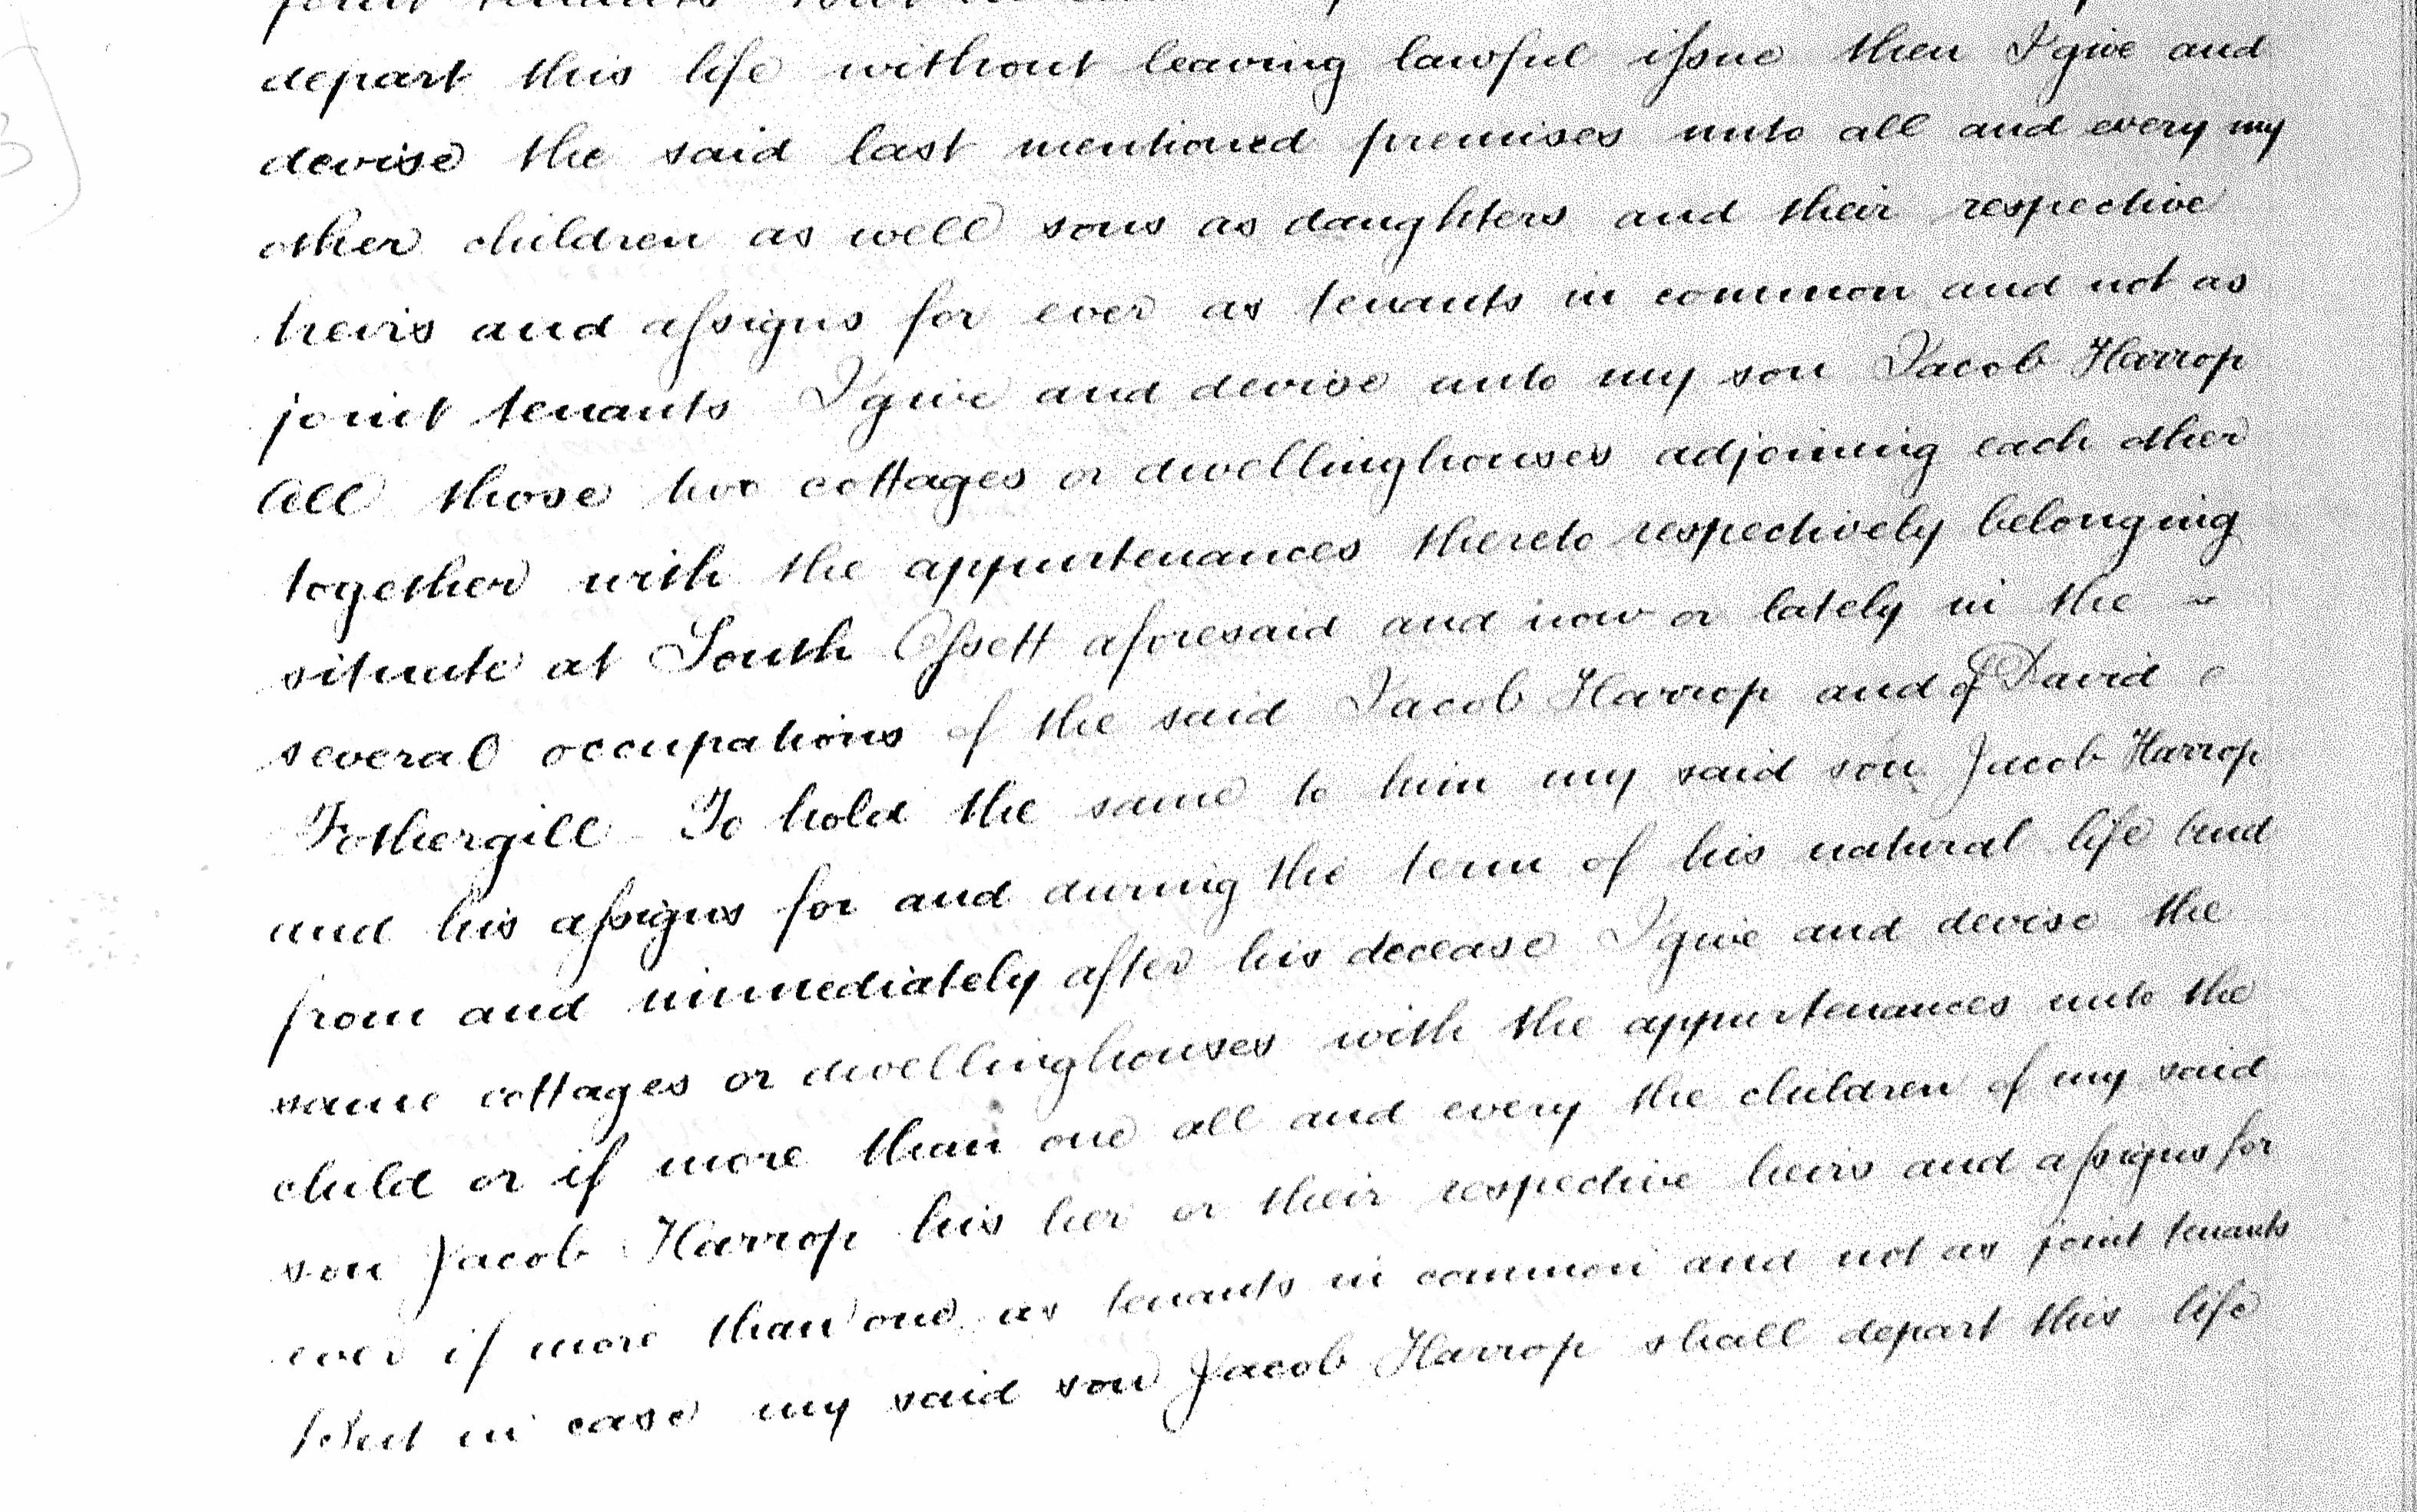 joint tenants
depart this life without leaving lawful issue then I give and
devise the said last mentioned premises unto all and every my
other children as well sons as daughters and their respective
heirs and assigns for ever as tenants in common and not as
joint tenants I give and devise unto my son Jacob Harrop
All those two cottages or dwellinghouses adjoining each other
together with the appurtenances thereto respectively belonging
situate at South Ossett aforesaid and now or lately in the ~
several occupations of the said Jacob Harrop and of David
Fothergill To hold the same to him my said son Jacob Harrop
and his assigns for and during the term of his natural life And
from and immediately after his decease I give and devise the
same cottages or dwellinghouses with the appurtenances unto the
child or if more than one all and every the children of my said
son Jacob Harrop his her or their respective heirs and assigns for
ever if more than one as tenants in common and not as joint tenants
But in case my said son Jacob Harrop shall depart this life